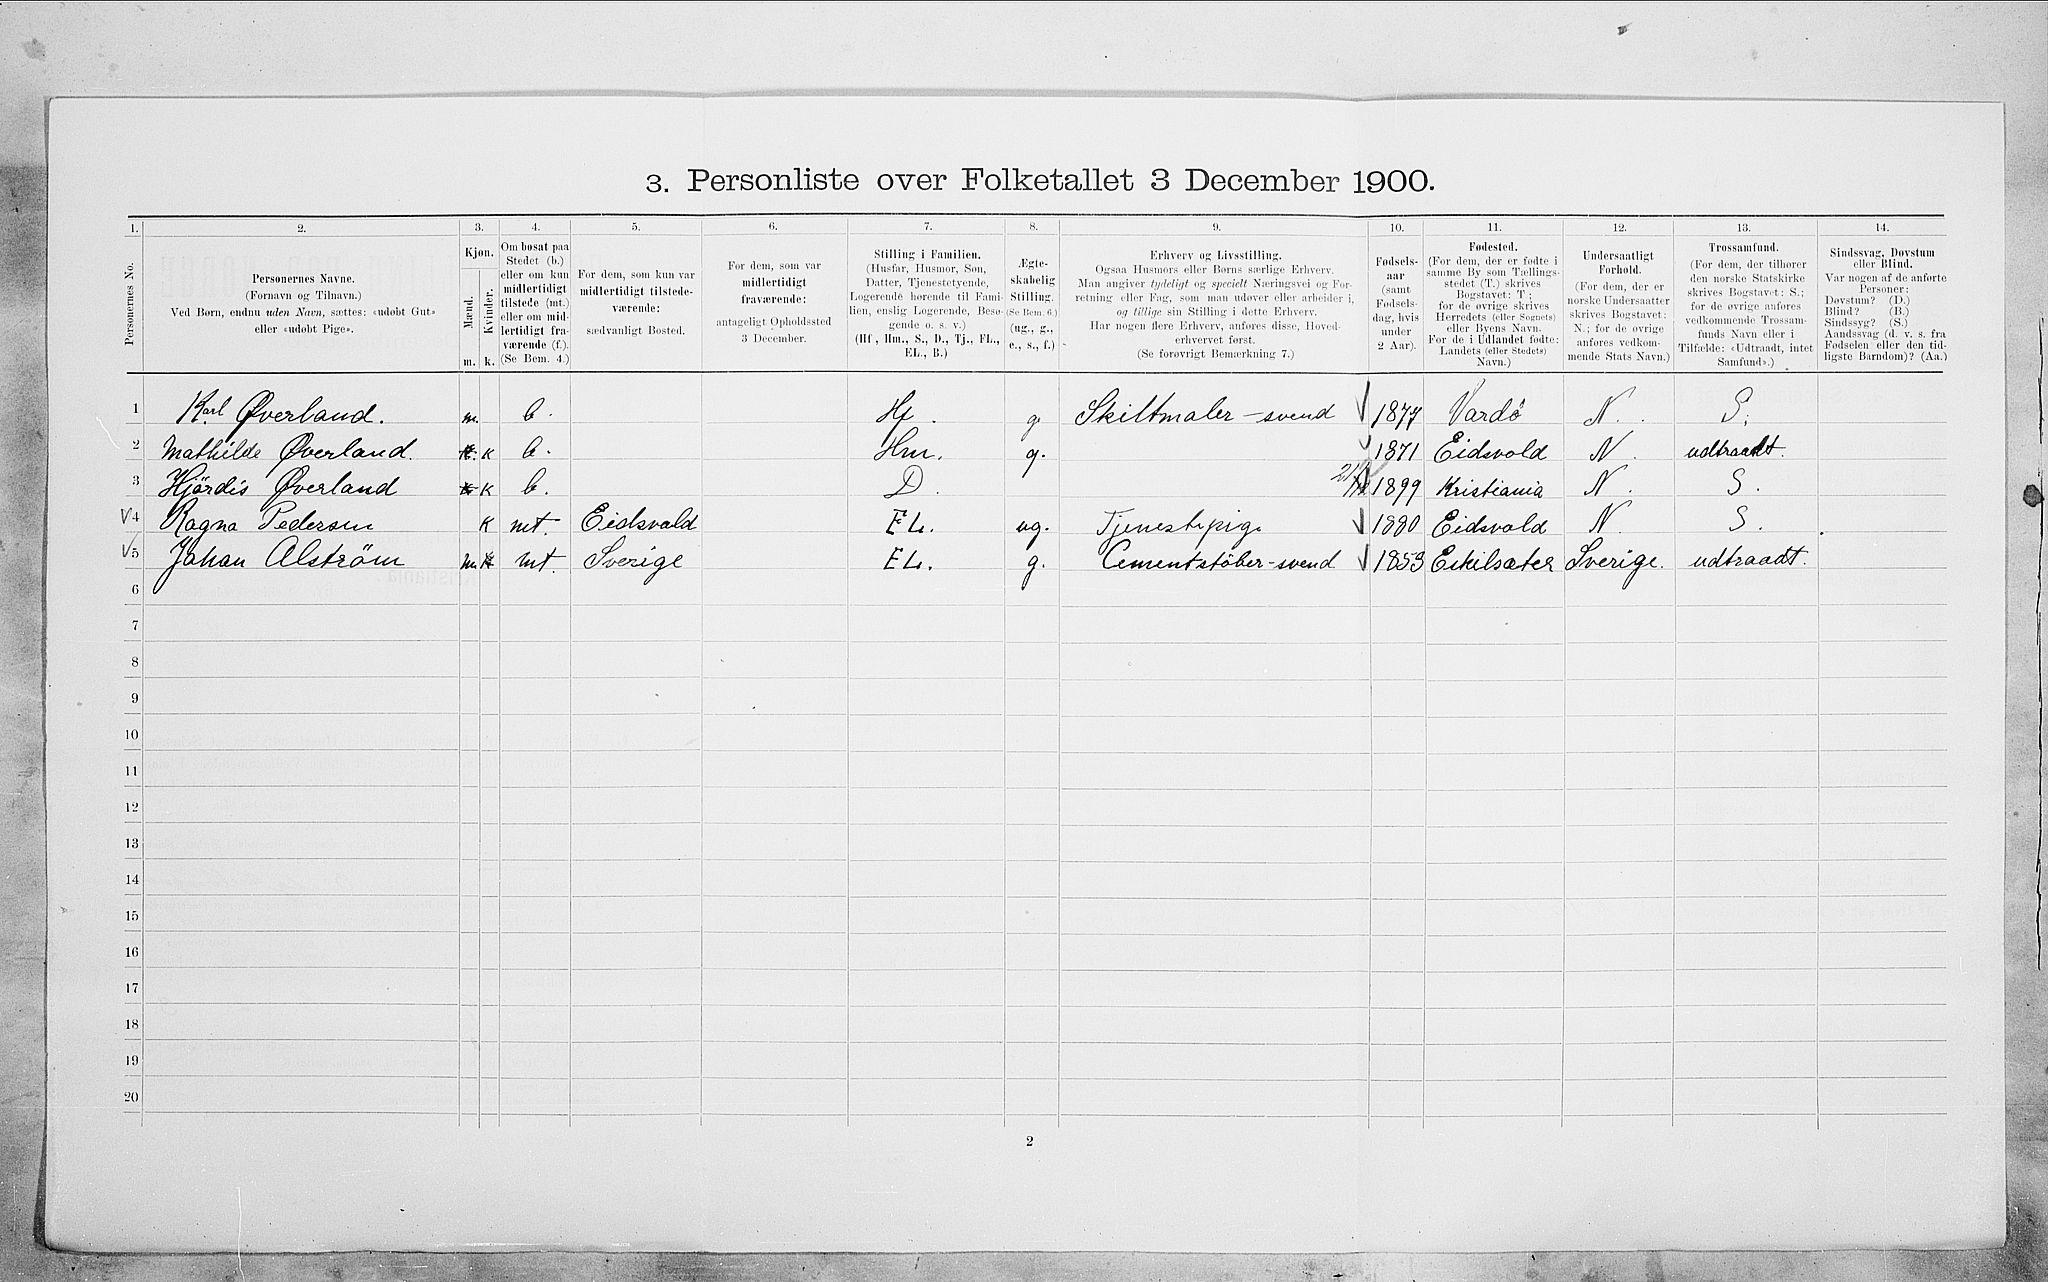 3. Personliste over Folketallet 3 December 1900.
1. 2. 3. 4. 5. 6. 7. 8. 9. 10. 11. 12. 13. 14.
Personernes No.
Personernes Navne.
(Fornavn og Tilnavn.)
Ved Børn, endnu uden Navn, sættes: «udøbt Gut»
eller «udøbt Pige».
Kjøn.
Mænd.
Kvinder.
m. k.
Om bosat paa
Stedet (b.)
eller om kun
midlertidigt
tilstede (mt.)
eller om mid-
lertidigt fra-
værende (f.).
(Se Bem. 4.)
For dem, som kun var
midlertidigt tilstede-
værende:
sædvanligt Bosted.
For dem, som var
midlertidigt
fraværende:
antageligt Opholdssted
3 December.
Stilling i Familien.
(Husfar, Husmor, Søn,
Datter, Tjenestetyende,
Logerende hørende til Fami-
lien, enslig Logerende, Besø-
gende o. s. v.)
(Hf, Hm., S., D., Tj., FL.,
EL., B.)
Ægte-
skabelig
Stilling.
(Se Bem. 6.)
(ug., g.,
e., s., f.)
Erhverv og Livsstilling.
Ogsaa Husmors eller Børns særlige Erhverv.
Man angiver tydeligt og specielt Næringsvei og For-
retning eller Fag, som man udøver eller arbeider i,
og tillige sin Stilling i dette Erhverv.
Har nogen flere Erhverv, anføres disse, Hoved-
erhvervet først.
(Se forøvrigt Bemærkning 7.)
Fødsels-
aar
(samt
Fødsels-
dag, hvis
under
2 Aar).
Fødested.
(For dem, der er fødte i
samme By som Tællings-
stedet (T.) skrives
Bogstavet: T;
for de øvrige skrives
Herredets (eller Sognets)
eller Byens Navn.
For de i Udlandet fødte:
Landets (eller Stedets)
Navn.)
Undersaatligt
Forhold.
(For dem, der er
norske Undersaatter
skrives Bogstavet:
N.; for de øvrige
anføres vedkom-
mende Stats Navn.)
Trossamfund.
(For dem, der tilhører
den norske Statskirke
skrives Bogstavet: S.;
for de øvrige anføres
vedkommende Trossam-
funds Navn eller i
Tilfælde: «Udtraadt, intet
Samfund».)
Sindssvag, Døvstum
eller Blind.
Var nogen af de anførte
Personer:
Døvstum? (D.)
Blind? (B.)
Sindssyg? (S.)
Aandssvag (d. v. s. fra
Fødselen eller den tid-
ligste Barndom)? (Aa.)
1 Karl Øverland. m. b. Hf. g. Skiltmaler-svend 1877 Vardö N. S.
2 Mathilde Øverland. K b. Hm. g. 1871 Eidsvold N. udtraadt.
3 Hjördis Øverland K b. D. 1899 Kristiania N. S.
4 Ragna Pedersen K mt. Eidsvold EL. ug. Tjenestepige 1880 Eidsvold N. S.
5 Johan Alström m. mt. Sverige EL. g. Cementstöber-svend 1853 Eskilsæter Sverige. udtraadt.
6
7
8
9
10
11
12
13
14
15
16
17
18
19
20
2